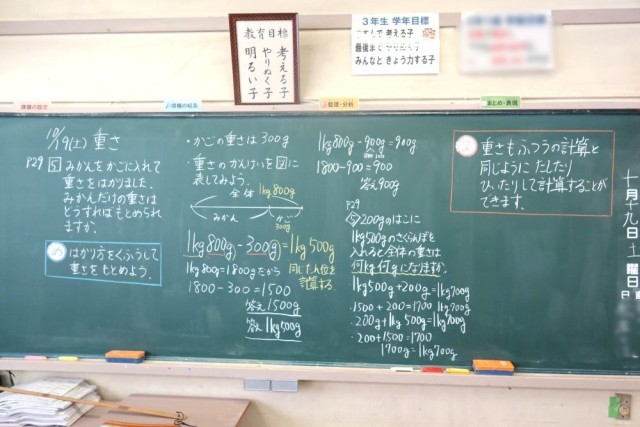 教育目標
考える子
やりぬく子
明るい子
3年生 学年目標
考える子
最後まで
みんなと きょう力する子
課題の設定
情報の収集
整理・分析
まとめ・表現
10/19(土) 重さ
P29 5 みかんをかごに入れて
重さをはかりました。
みかんだけの重さは
どうすればもとめられ
ますか。
め はかり方をくふうして
重さをもとめよう。
・かごの重さは300g
・重さのかんけいを図に
表してみよう。
全体 1kg800g
みかん かご
300g
1kg800g-300g=1kg500g
1kg800g=1800gだから
同じたん位を
計算する。
1800-300=1500
答え1500g
答え 1kg500g
1kg800g-900g=900g
1800-900=900
答え900g
P29
5 200gのはこに
1kg500gのさくらんぼを
入れると全体の重さは
何kg何gになりますか。
1kg500g+200g=1kg700g
・1500+200=1700 1kg700g
・200g+1kg500g=1kg700g
・200+1500=1700
1700g=1kg700g
重さもふつうの計算と
同じように たしたり
ひいたりして計算することが
できます。
十月十九日土曜日